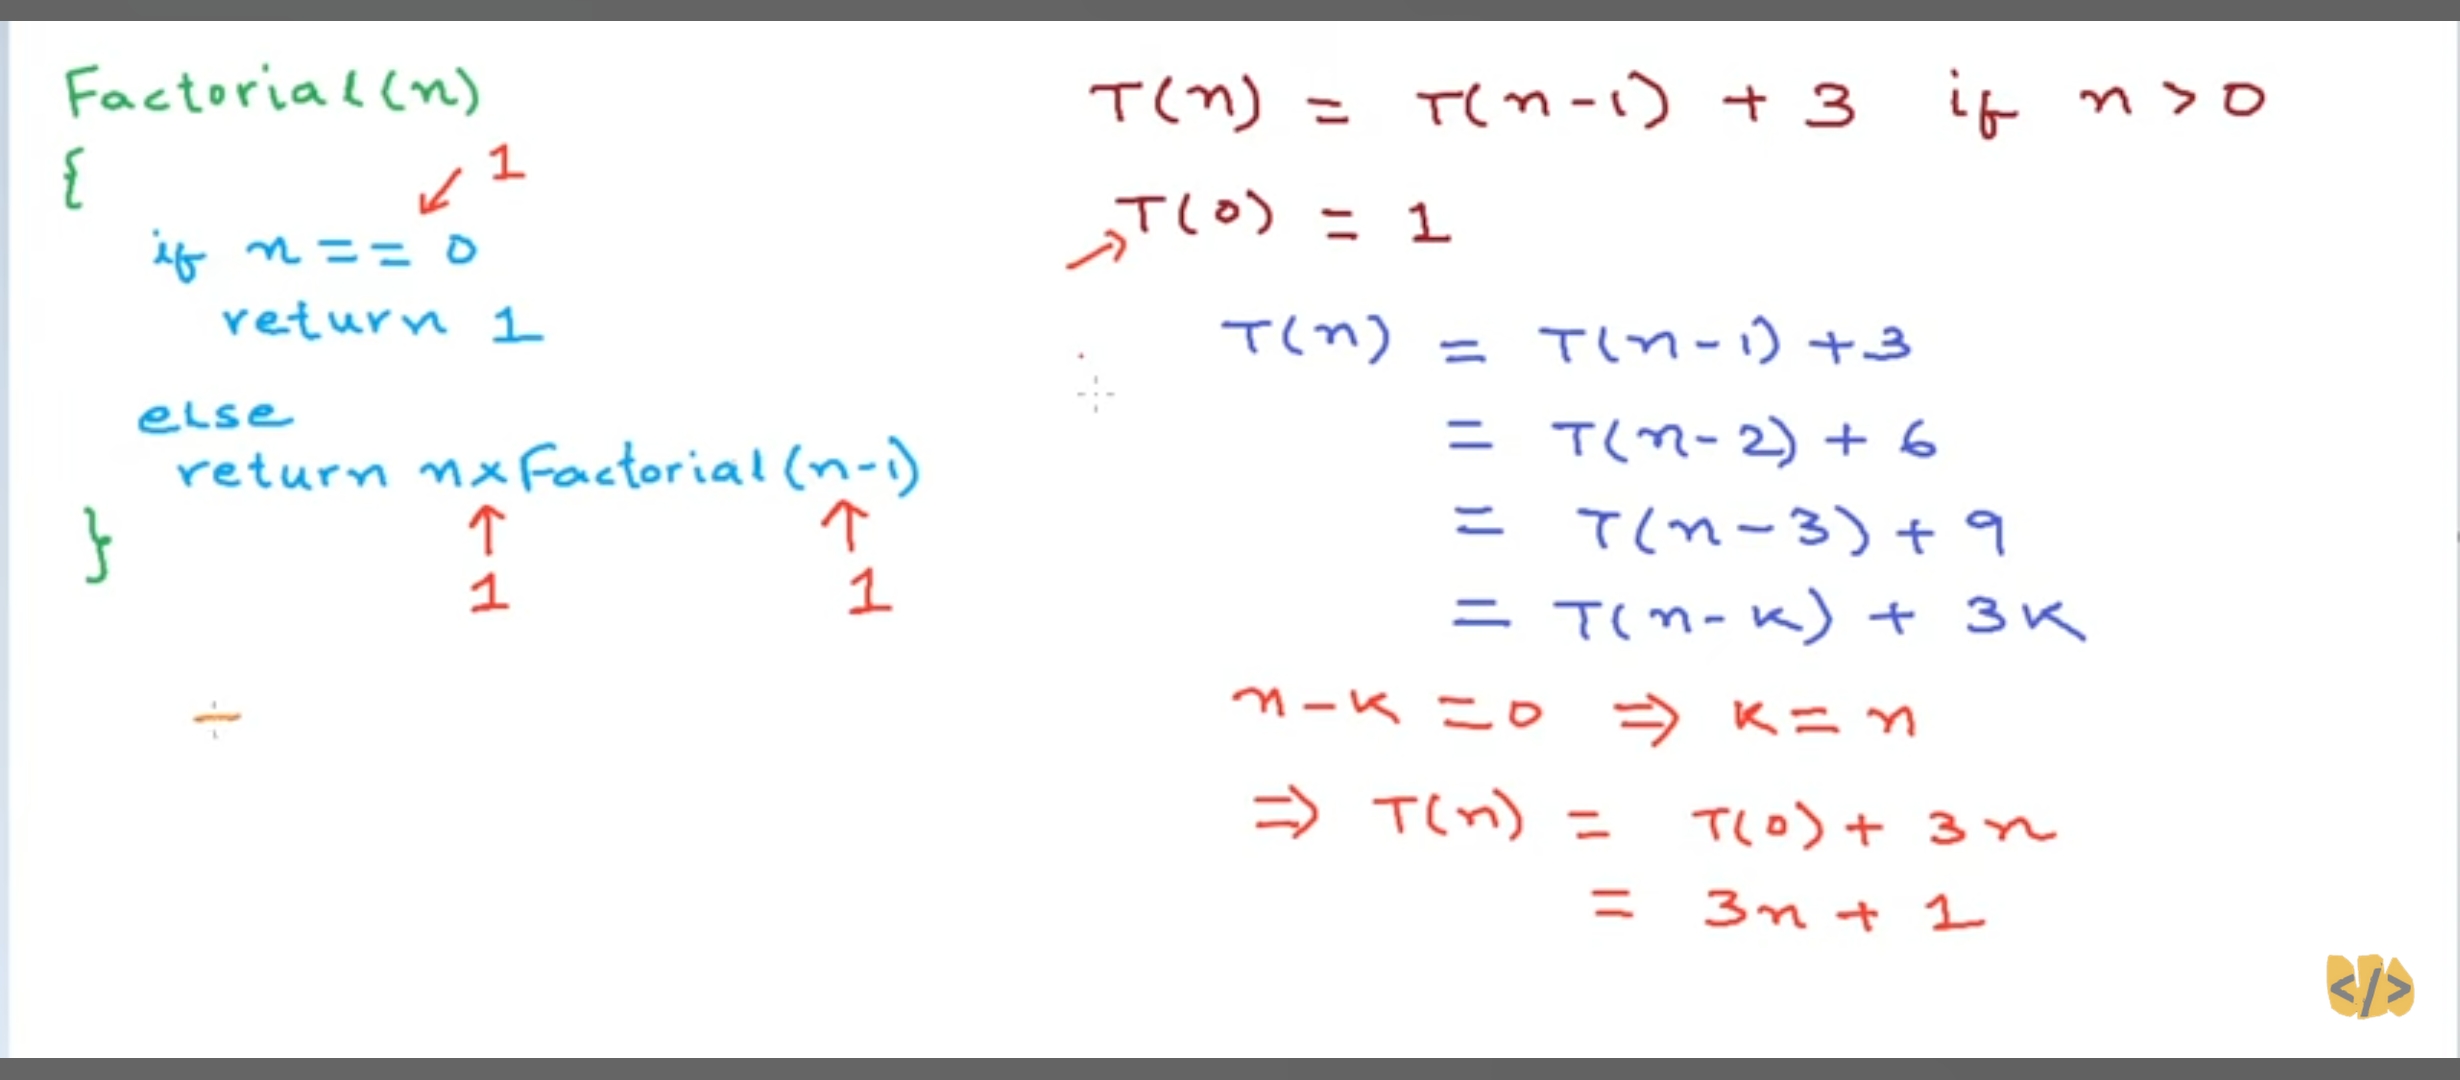 Factorial(n)
{
1
if n == 0
return 1
else
return n x Factorial(n-1)
1 1
}
T(n) = T(n-1) + 3 if n > 0
T(0) = 1
T(n) = T(n-1) + 3
= T(n-2) + 6
= T(n-3) + 9
= T(n-k) + 3k
n-k = 0 ⇒ k = n
⇒ T(n) = T(0) + 3n
= 3n + 1
</>